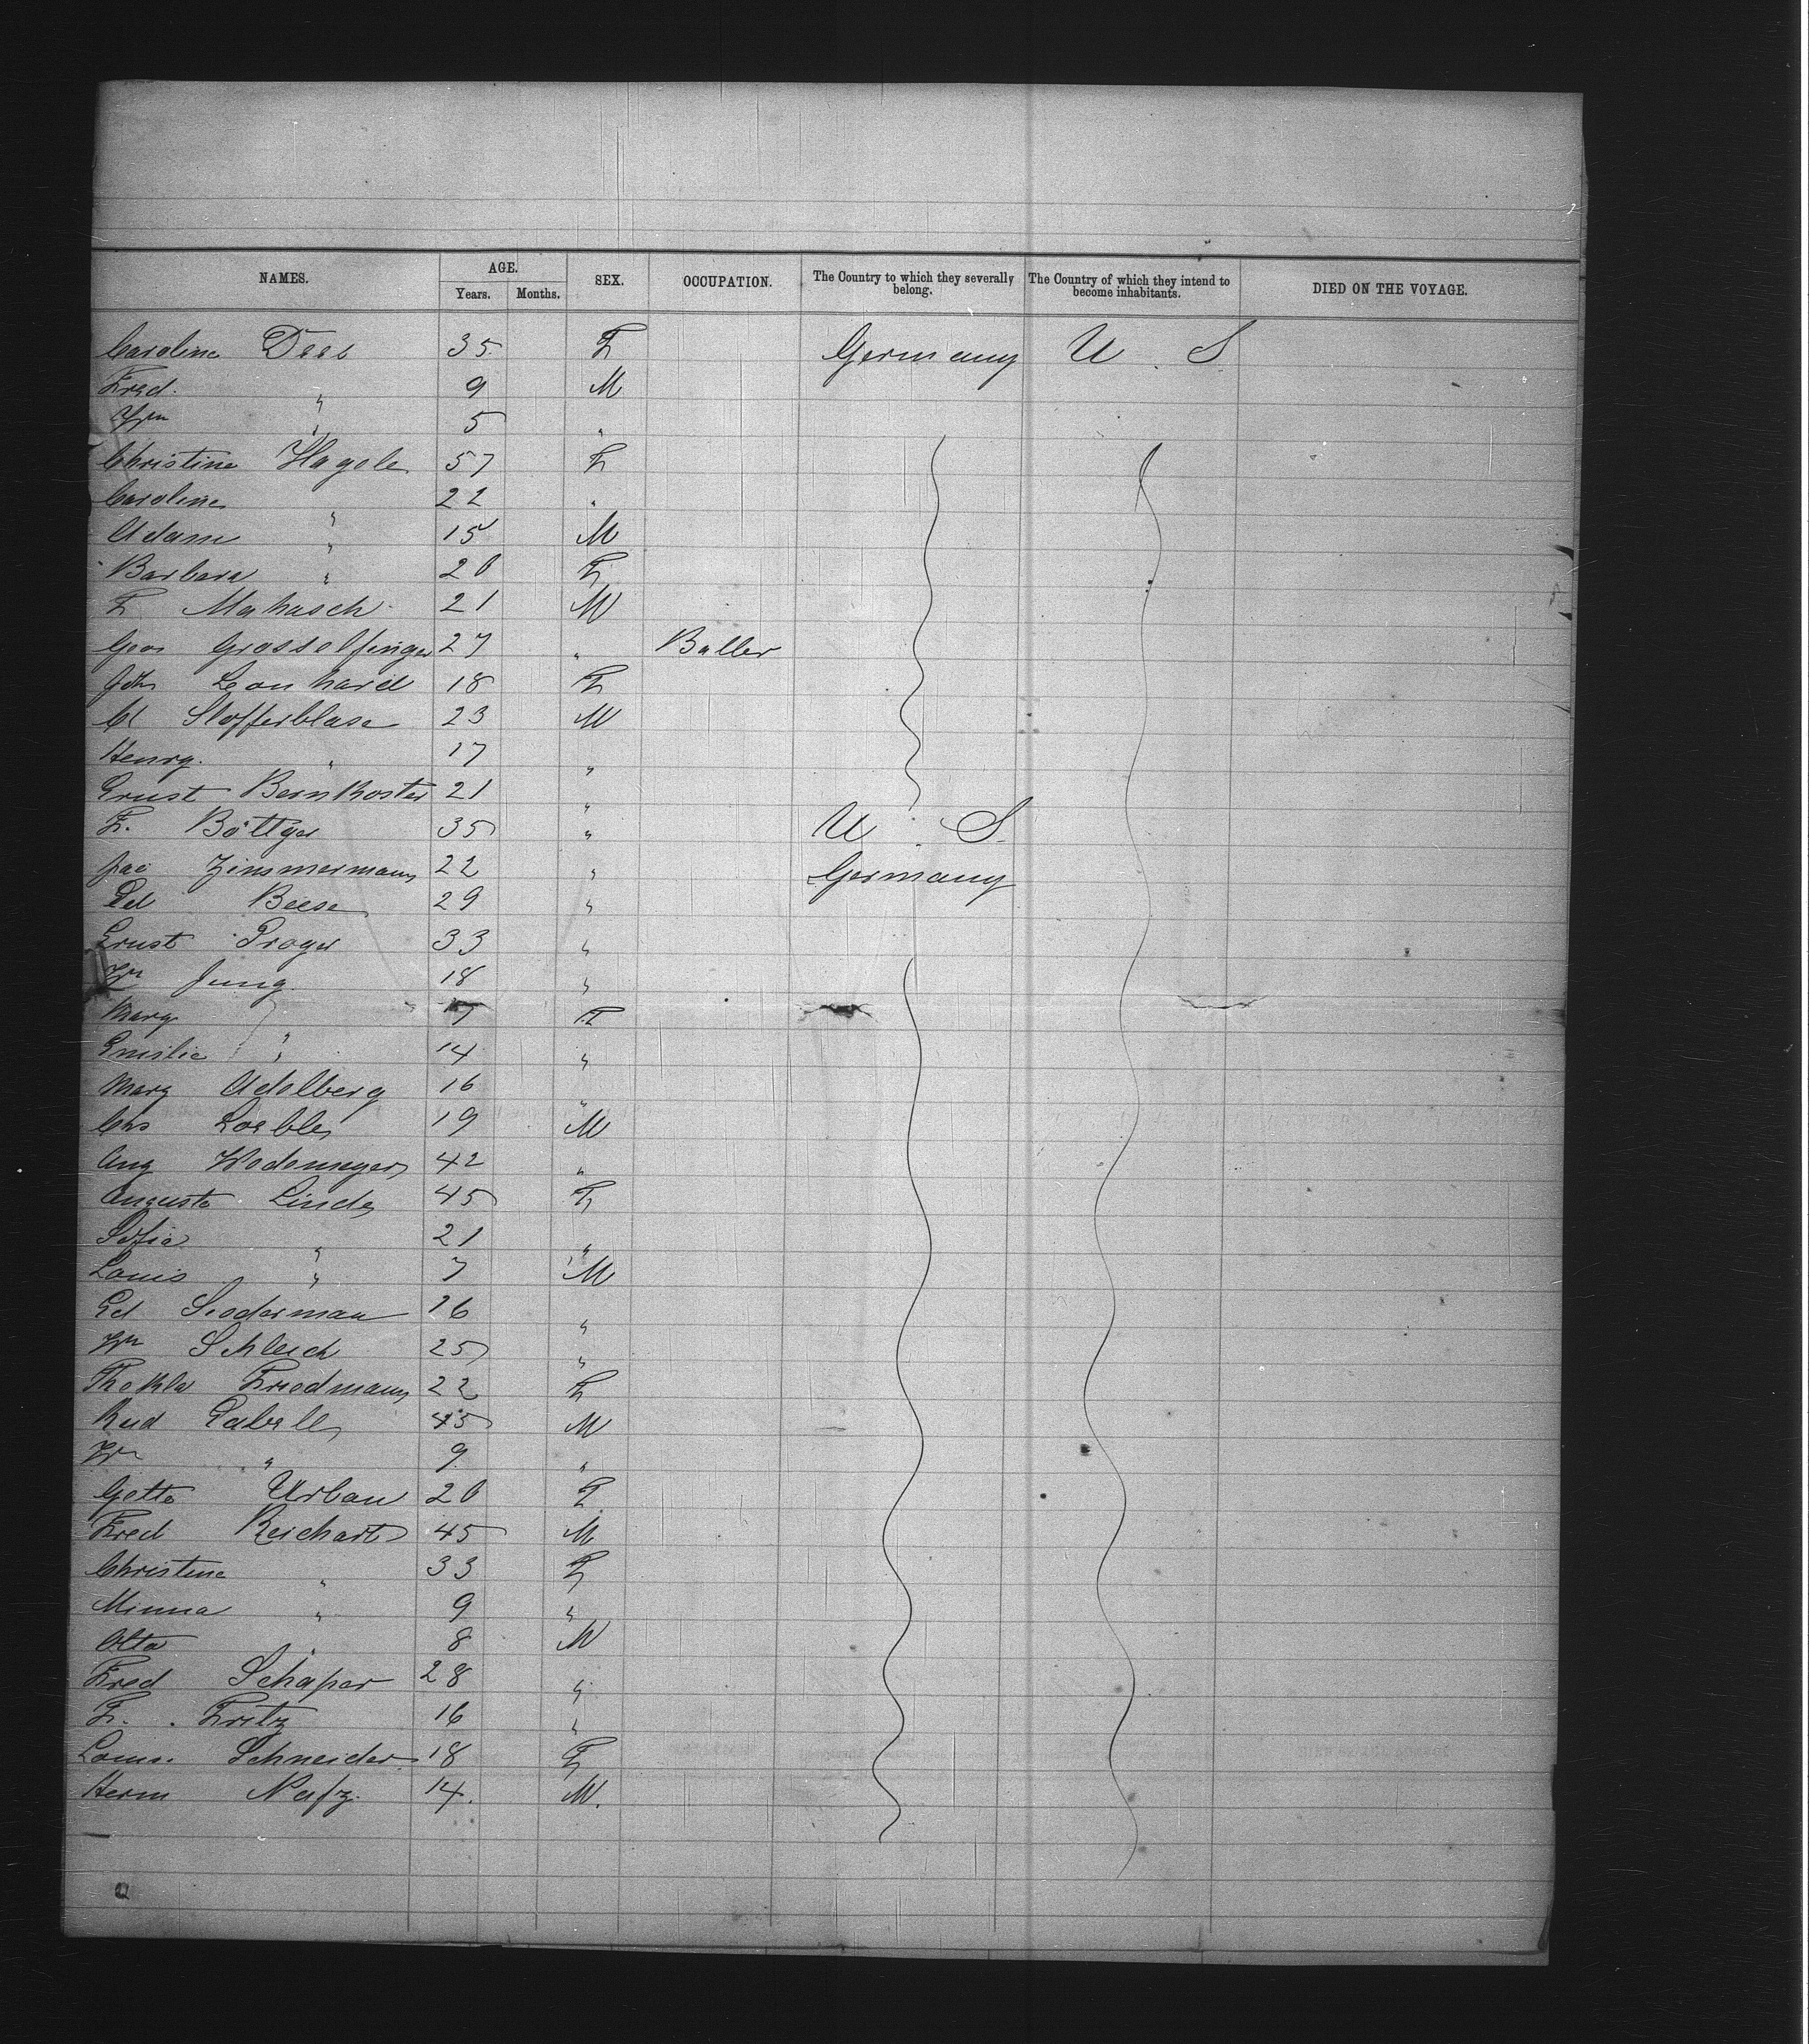 NAMES. AGE. SEX. OCCUPATION. The Country to which they severally belong. The Country of which they intend to become inhabitants. DIED ON THE VOYAGE.
Years. Months.
Caroline Dees 35 F Germany U. S.
Fred. " 9 M
Wm " 5 "
Christine Hagele 57 F
Caroline " 22 "
Adam " 15 M
Barbara " 20 F
F Mahasch 21 M
Geo Grosselfinger 27 " Butler
Joh Leonhard 18 F
Cl Slofferblase 23 M
Henry. " 17 "
Ernst Bernkoster 21 "
F. Böttger 35 " U. S.
Jac Zimmermann 22 " Germany
Ed Beese 29 "
Ernst Proger 33 "
Wm Jung 18 "
Mary 17 F
Emilie " 14 "
Mary Adelberg 16 "
Chs Loeble 19 M
Aug Wedemeyer 42 "
Auguste Linde 45 F
Sofie " 21 "
Louis " 7 M
Ed Suderman 26 "
Wm Schleich 25 "
Thekla Friedmann 22 F
Rud Gabell 45 M
Wm " 9 "
Gette Urban 20 F
Fred Reichart 45 M
Christine " 33 F
Minna " 9 "
Otto " 8 M
Fred Schaper 28 "
F. Fritz 16 "
Louise Schneider 18 F
Herm Nafz. 14. M.